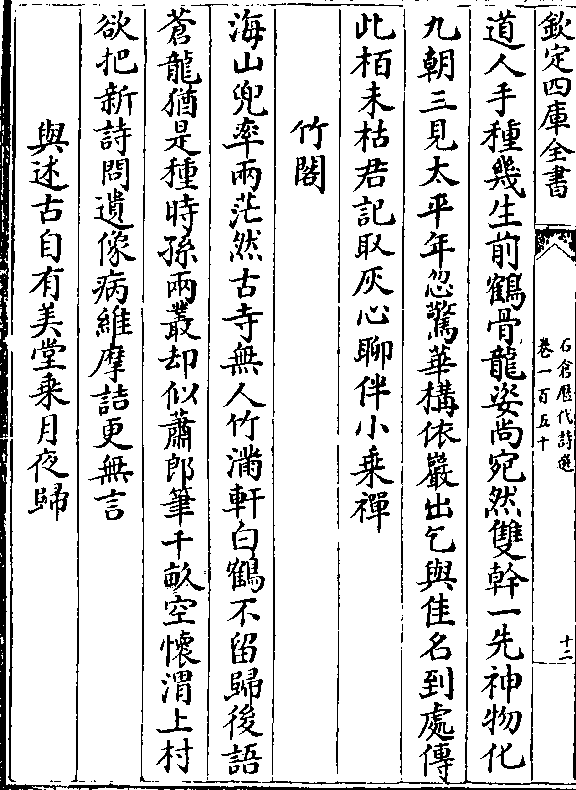 欽定四庫全書
石倉歷代詩選
卷一百五十
十二
道人手種幾生前鶴骨龍姿尚宛然雙幹一先神物化
九朝三見太平年忽驚華構依巖出乞與佳名到處傳
此栢未枯君記取灰心聊伴小乗禪
竹閣
海山兜率兩茫然古寺無人竹滿軒白鶴不留歸後語
蒼龍猶是種時孫兩叢却似蕭郎筆千畝空懷渭上村
欲把新詩問遺像病維摩詰更無言
與述古自有美堂乗月夜歸